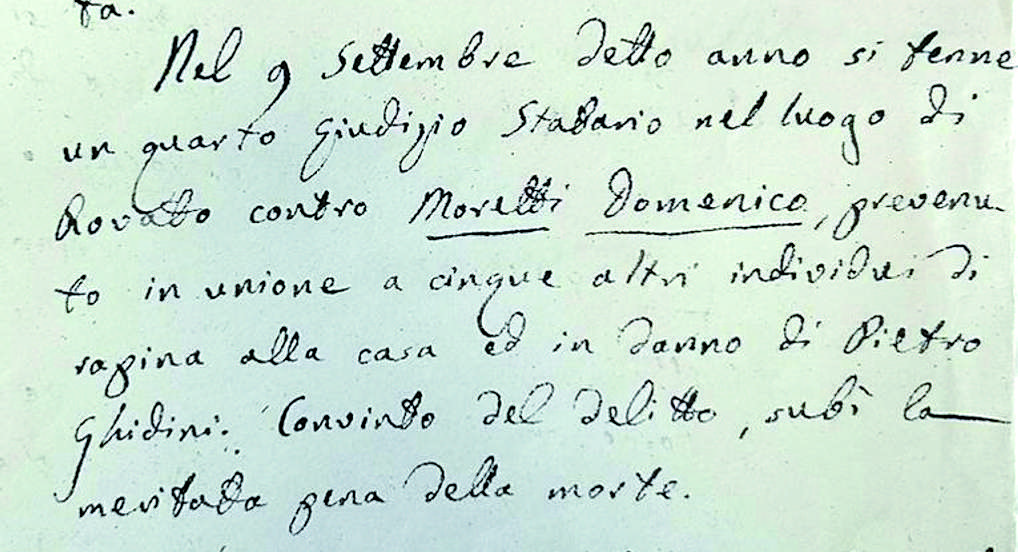 ta.
Nel 9 Settembre detto anno si tenne
un quarto Giudizio Statario nel luogo di
Rovato contro Moretti Domenico, prevenu-
to in unione a cinque altri individui di
rapina alla casa ed in danno di Pietro
Ghidini. Convinto del delitto, subì la
meritata pena della morte.